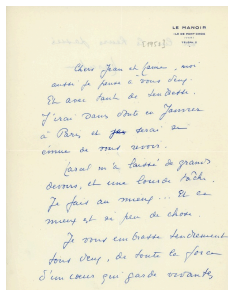 LE MANOIR
Chers Jean et James, moi
aussi je pense à vous deux.
Et avec tant de tendresse.
J'irai sans doute en Janvier
à Paris et serai si
émue de vous revoir.
m'a laissé de grands
devoirs, et une lourde tâche.
Je fais au mieux... Et ce
mieux est si peu de chose
Je vous embrasse tendrement
tous deux, de toute la force
d'un cœur qui garde vivantes